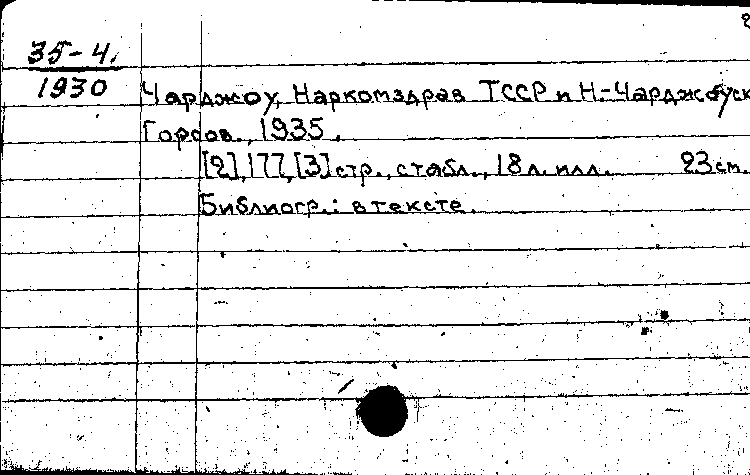 35-4.
1930
Чарджоу, Наркомздрав ТССР и Н.-Чарджоуск
Горсов., 1935.
[2], 177, [3] стр., с табл., 18 л. илл. 23 см.
Библиогр.: в тексте.